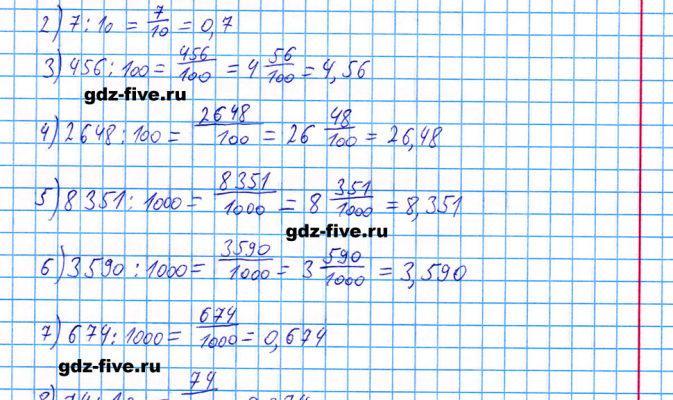 2) 7 : 10 = 7/10 = 0,7
3) 456 : 100 = 456/100 = 4 56/100 = 4,56
gdz-five.ru
4) 2648 : 100 = 2648/100 = 26 48/100 = 26,48
5) 8351 : 1000 = 8351/1000 = 8 351/1000 = 8,351
gdz-five.ru
6) 3590 : 1000 = 3590/1000 = 3 590/1000 = 3,590
7) 674 : 1000 = 674/1000 = 0,674
gdz-five.ru
74